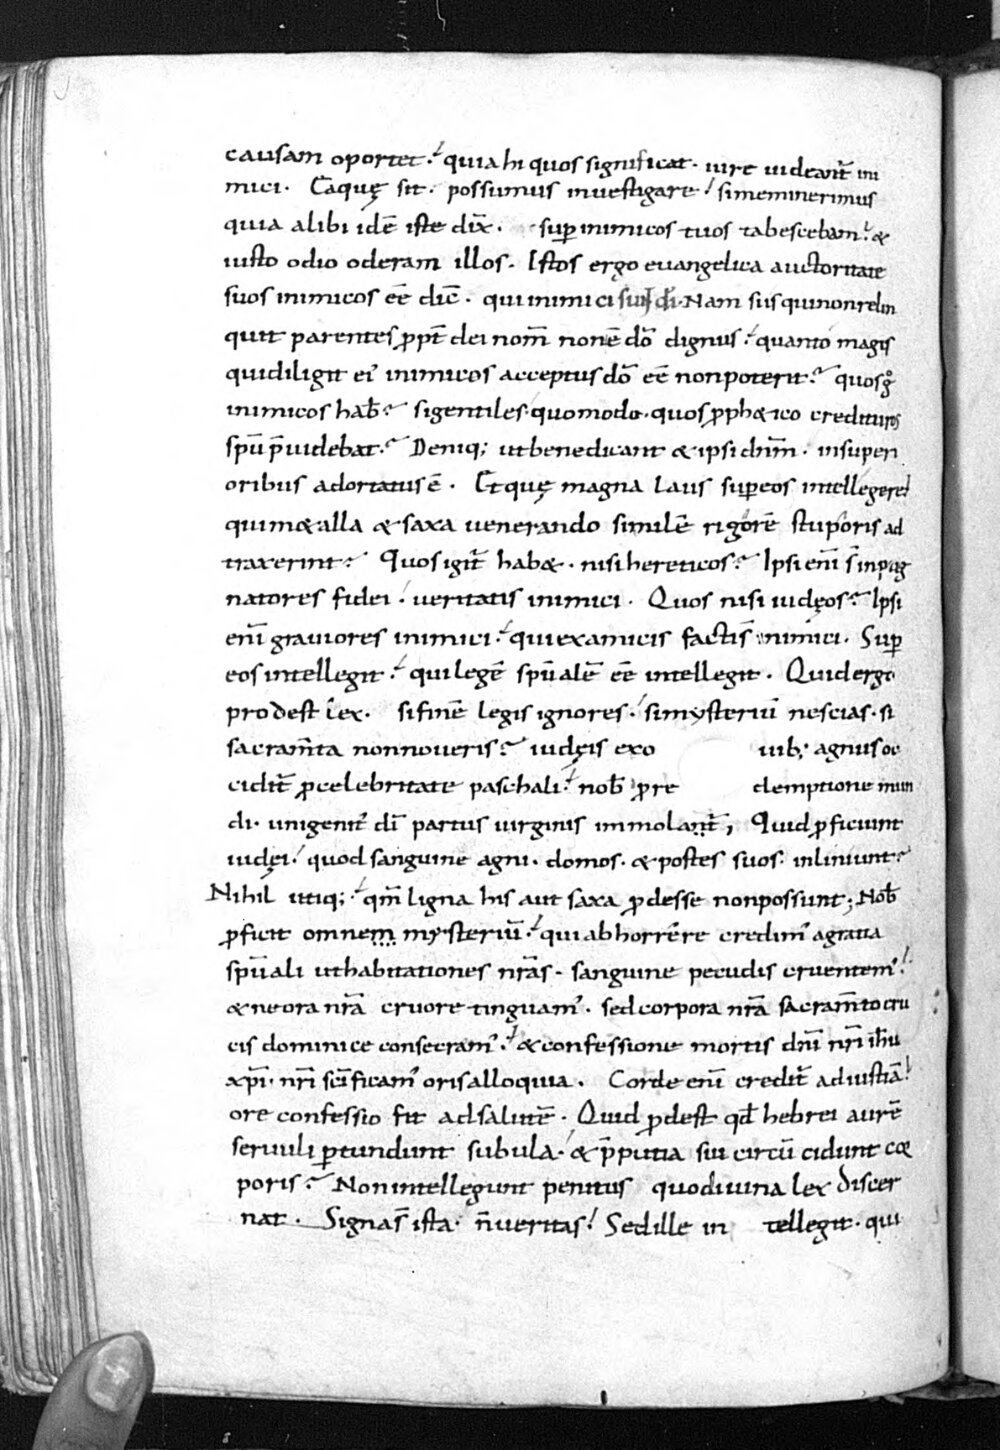 causam oportet. quia hi quos significat. iure uideant̄ ini
mici. Ea quę sit. possumus inuestigare. si meminerimus
quia alibi idē iste dix̄. sup̄ inimicos tuos tabescebam. &
iusto odio oderam illos. Istos ergo euangelica auctoritate
suos inimicos eē dic̄. qui inimici sunt dī. Nam si is qui non relin
quit parentes ꝓpt̄ dei nom̄ non ē dō dignus. quanto magis
qui diligit ei' inimicos acceptus dō eē non poterit? quos gͦ
inimicos hab̄? si gentiles. quomodo. quos ꝓph&ico credituros
spū p̄uidebat? Deniq; ut benedicant & ipsi dn̄m. in superi
oribus adortatus ē. Et quę magna laus sup̄ eos intellegere
qui m&alla & saxa uenerando similē rigorē stuporis ad
traxerint? Quos igit̄ hab&. nisi hereticos? Ipsi eni̅ s̄ inpug
natores fidei. ueritatis inimici. Quos nisi iudęos? Ipsi
eni̅ grauiores inimici. qui ex amicis facti s̄ inimici. Sup̄
eos intellegit. qui legē spū alē eē intellegit. Quid ergo
prodest lex. si finē legis ignores. si mysteriū nescias. si
sacram̄ta non noueris? iudęis exo uib; agnus oc
cidit̄ ꝓ celebritate paschali. nob̄ pre demptione mun
di. unigenit' dī partus uirginis immolant̄; Quid ꝓficiunt
iudęi. quod sanguine agni. domos. & postes suos inliniunt?
Nihil utiq;. qm̄ ligna his aut saxa ꝓdesse non possunt; Nob̄
ꝓficit omnem mysteriū. qui abhorrere credim' a gratia
spū ali ut habitationes nr̄as. sanguine pecudis cruentem'.
& ne ora nr̄a cruore tinguam'. sed corpora nr̄a sacram̄to cru
cis dominice consecram'. & confessione mortis dn̄i nr̄i ih̄u
xp̄i. nr̄i sc̄ificam' oris alloquia. Corde eni̅ credit̄ ad iustiā.
ore confessio fit ad salutē. Quid ꝓdest qd̄ hebrei aurē
seruuli ꝑtundunt subula. & p̄putia sui circū cidunt cor
poris? Non intellegunt penitus quo diuina lex discer
nat. Signa s̄ ista. n̄ ueritas. Sed ille in tellegit. qui